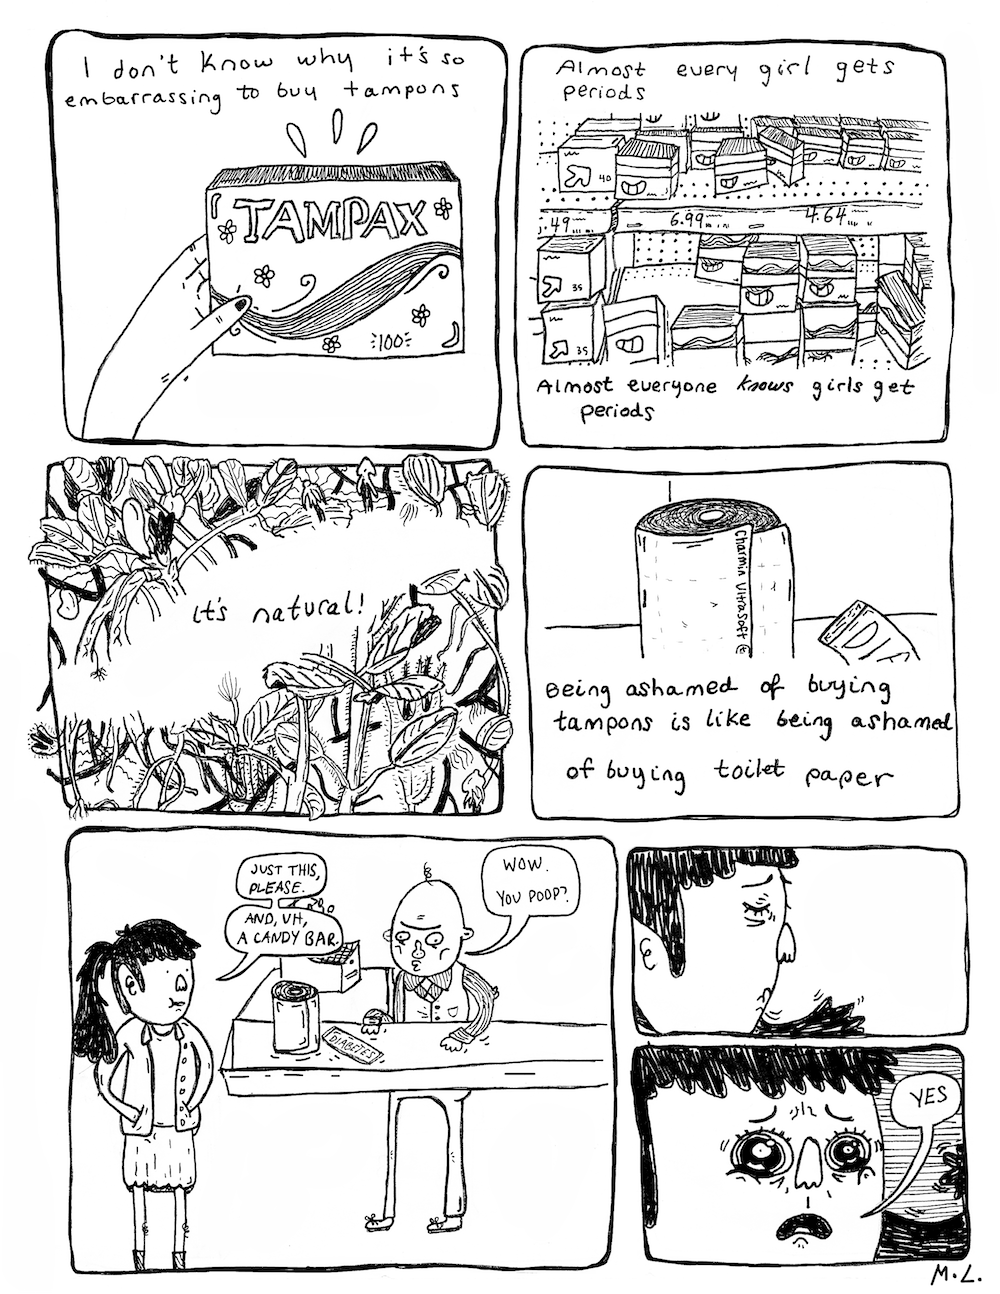 I don't know why it's so
embarrassing to buy tampons
TAMPAX
100
Almost every girl gets
periods
40
.49
6.99
4.64
35
35
Almost everyone knows girls get
periods
it's natural!
Charmin UltraSoft
Being ashamed of buying
tampons is like being ashamed
of buying toilet paper
JUST THIS,
PLEASE.
AND, UH,
A CANDY BAR.
WOW.
YOU POOP?
DIABETES
YES
M.L.